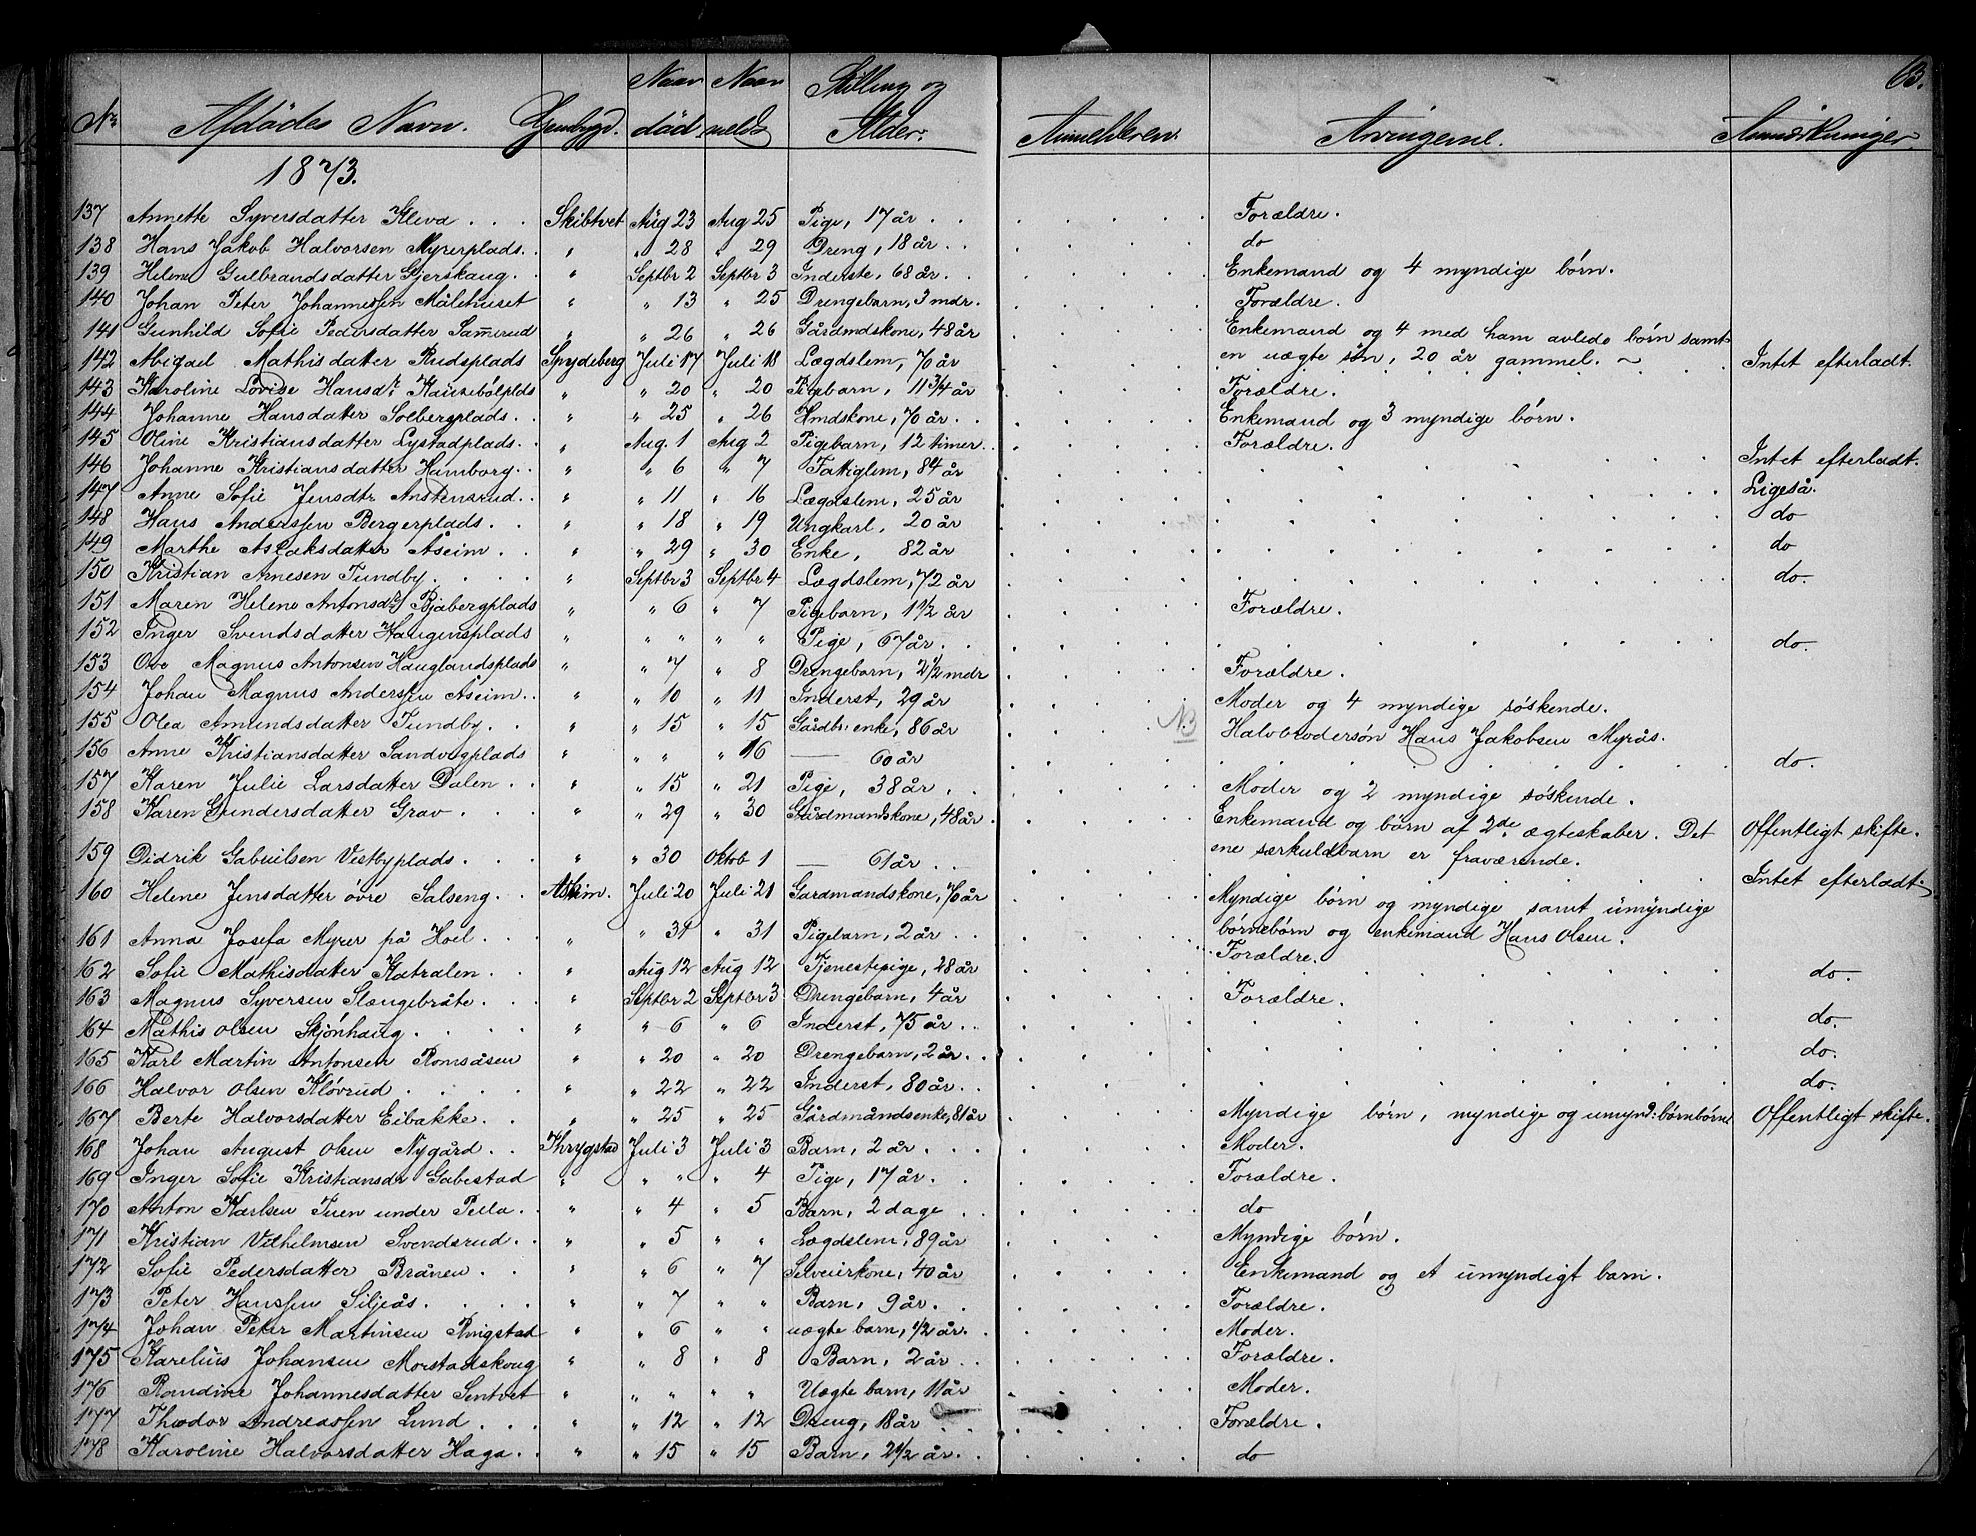 63.
No Afdødes Navn. Naar død Naar meldt Stilling og Alder. Anmelderen. Arvingerne. Anmærkninger.
1873.
137 Annette Syversdatter Kleva . . . Skibtvet Aug 23 Aug 25 Pige, 17 år . . Forældre.
138 Hans Jakob Halvorsen Myrerplads. . " " 28 " 29 Dreng, 18 år . . do
139 Helene Gulbrandsdatter Gjerskaug. . " Septbr 2 Septbr 3 Inderste, 68 år . . Enkemand og 4 myndige børn.
140 Johan Peter Johannessen Målehuset " " 13 " 25 Drengebarn, 3 mdr. Forældre.
141 Gunhild Sofie Pedersdatter Samerud " " 26 " 26 Gårdmdskone, 48 år Enkemand og 4 med ham avlede børn samt
en uægte søn, 20 år gammel. ~
142 Abigael Mathisdatter Rudsplads Spydeberg Juli 17 Juli 18 Lægdslem, 70 år Intet efterladt.
143 Karoline Lovise Hansdr. Knusebølplds " " 20 " 20 Pigebarn, 11 3/4 år Forældre.
144 Johanne Hansdatter Solbergplads. . " " 25 " 26 Hmdskone, 70 år . . Enkemand og 3 myndige børn.
145 Oline Kristiansdatter Lystadplads. . " Aug. 1 Aug 2 Pigebarn, 12 timer. Forældre.
146 Johanne Kristiansdatter Hamborg. . " " 6 " 7 Fattiglem, 84 år Intet efterladt.
147 Anne Sofie Jensdtr Anstensrud. . " " 11 " 16 Lægdslem, 25 år Ligeså.
148 Hans Anderssen Bergerplads. . " " 18 " 19 Ungkarl, 20 år do
149 Marthe Aslaksdatter Åseim. . " " 29 " 30 Enke, 82 år do
150 Kristian Arnesen Tundby. . . . " Septbr 3 Septbr 4 Lægdslem, 72 år do.
151 Maren Helene Antonsdr. Bjabergplads " " 6 " 7 Pigebarn, 1 1/2 år Forældre.
152 Inger Svendsdatter Haugensplads " " " " " Pige, 67 år . . do.
153 Ove Magnus Antonsen Hauglandsplads " " 7 " 8 Drengebarn, 2 1/2 mdr Forældre.
154 Johan Magnus Anderssen Åseim. . " " 10 " 11 Inderst, 29 år Moder og 4 myndige søskende.
155 Olea Amundsdatter Tundby. . " " 15 " 15 Gårdbr: enke, 86 år NB Halvbrodersøn Hans Jakobsen Myrås.
156 Anne Kristiansdatter Sandvigplads " " " " 16 — 60 år do.
157 Karen Julie Larsdatter Dalen . . " " 15 " 21 Pige, 38 år . . Moder og 2 myndige søskende.
158 Karen Gundersdatter Grav . . . " " 29 " 30 Gårdmandskone, 48 år. Enkemand og børn af 2de ægteskaber. Det Offentligt skifte.
ene særkuldbarn er fraværende.
159 Didrik Gabrielsen Vestbyplads. . . " " 30 Oktob 1 — 61 år . . Intet efterladt.
160 Helene Jensdatter øvre Salseng. . . Askim. Juli 20 Juli 21 Gårdmandskone, 70 år Myndige børn og myndige samt umyndige
børnebørn og enkemand Hans Olsen.
161 Anna Josefa Myrer på Hoel . . . " " 31 " 31 Pigebarn, 2 år . . Forældre.
162 Sofie Mathisdatter Katralen. . . " Aug 12 Aug 12 Tjenestepige, 28 år do.
163 Magnus Syversen Slængebråte. . . " Septbr 2 Septbr 3 Drengebarn, 4 år Forældre.
164 Mathis Olsen Skjønhaug. . . . " " 6 " 6 Inderst, 75 år . . do.
165 Karl Martin Antonsen Romsåsen " " 20 " 20 Drengebarn, 2 år. . do.
166 Halvor Olsen Kløvrud . . . . " " 22 " 22 Inderst, 80 år. . do.
167 Berte Halvorsdatter Eibakke. . . " " 25 " 25 Gårdmåndsenke, 81 år Myndige børn, myndige og umynd: børnbørn Offentligt skifte.
168 Johan August Olsen Nygård . . Thrygstad Juli 3 Juli 3 Barn, 2 år. . . . Moder.
169 Inger Sofie Kristiansdr Gabestad " " " " 4 Pige, 17 år. . . Forældre.
170 Anton Karlsen Tuen under Pella. . " " 4 " 5 Barn, 2 dage . . do
171 Kristian Vilhelmsen Svendsrud. . " " 5 " " Lægdslem, 89 år Myndige børn.
172 Sofie Pedersdatter Brånen . . " " 6 " 7 Selveierkone, 40 år Enkemand og et umyndigt barn.
173 Peter Hanssen Siljeås. . . . . " " 7 " " Barn, 9 år. . . Forældre.
174 Johan Peter Martinsen Ringstad " " 6 " " uægte barn, 1/2 år. . Moder.
175 Karelius Johansen Morstadskoug " " 8 " 8 Barn, 2 år. . . Forældre.
176 Randine Johannesdatter Sentvet " " " " " Uægte barn, 11 år Moder.
177 Theodor Andreassen Lund . . . " " 12 " 12 Dreng, 18 år Forældre.
178 Karoline Halvorsdatter Haga. . " " 15 " 15 Barn, 2 1/2 år. . do